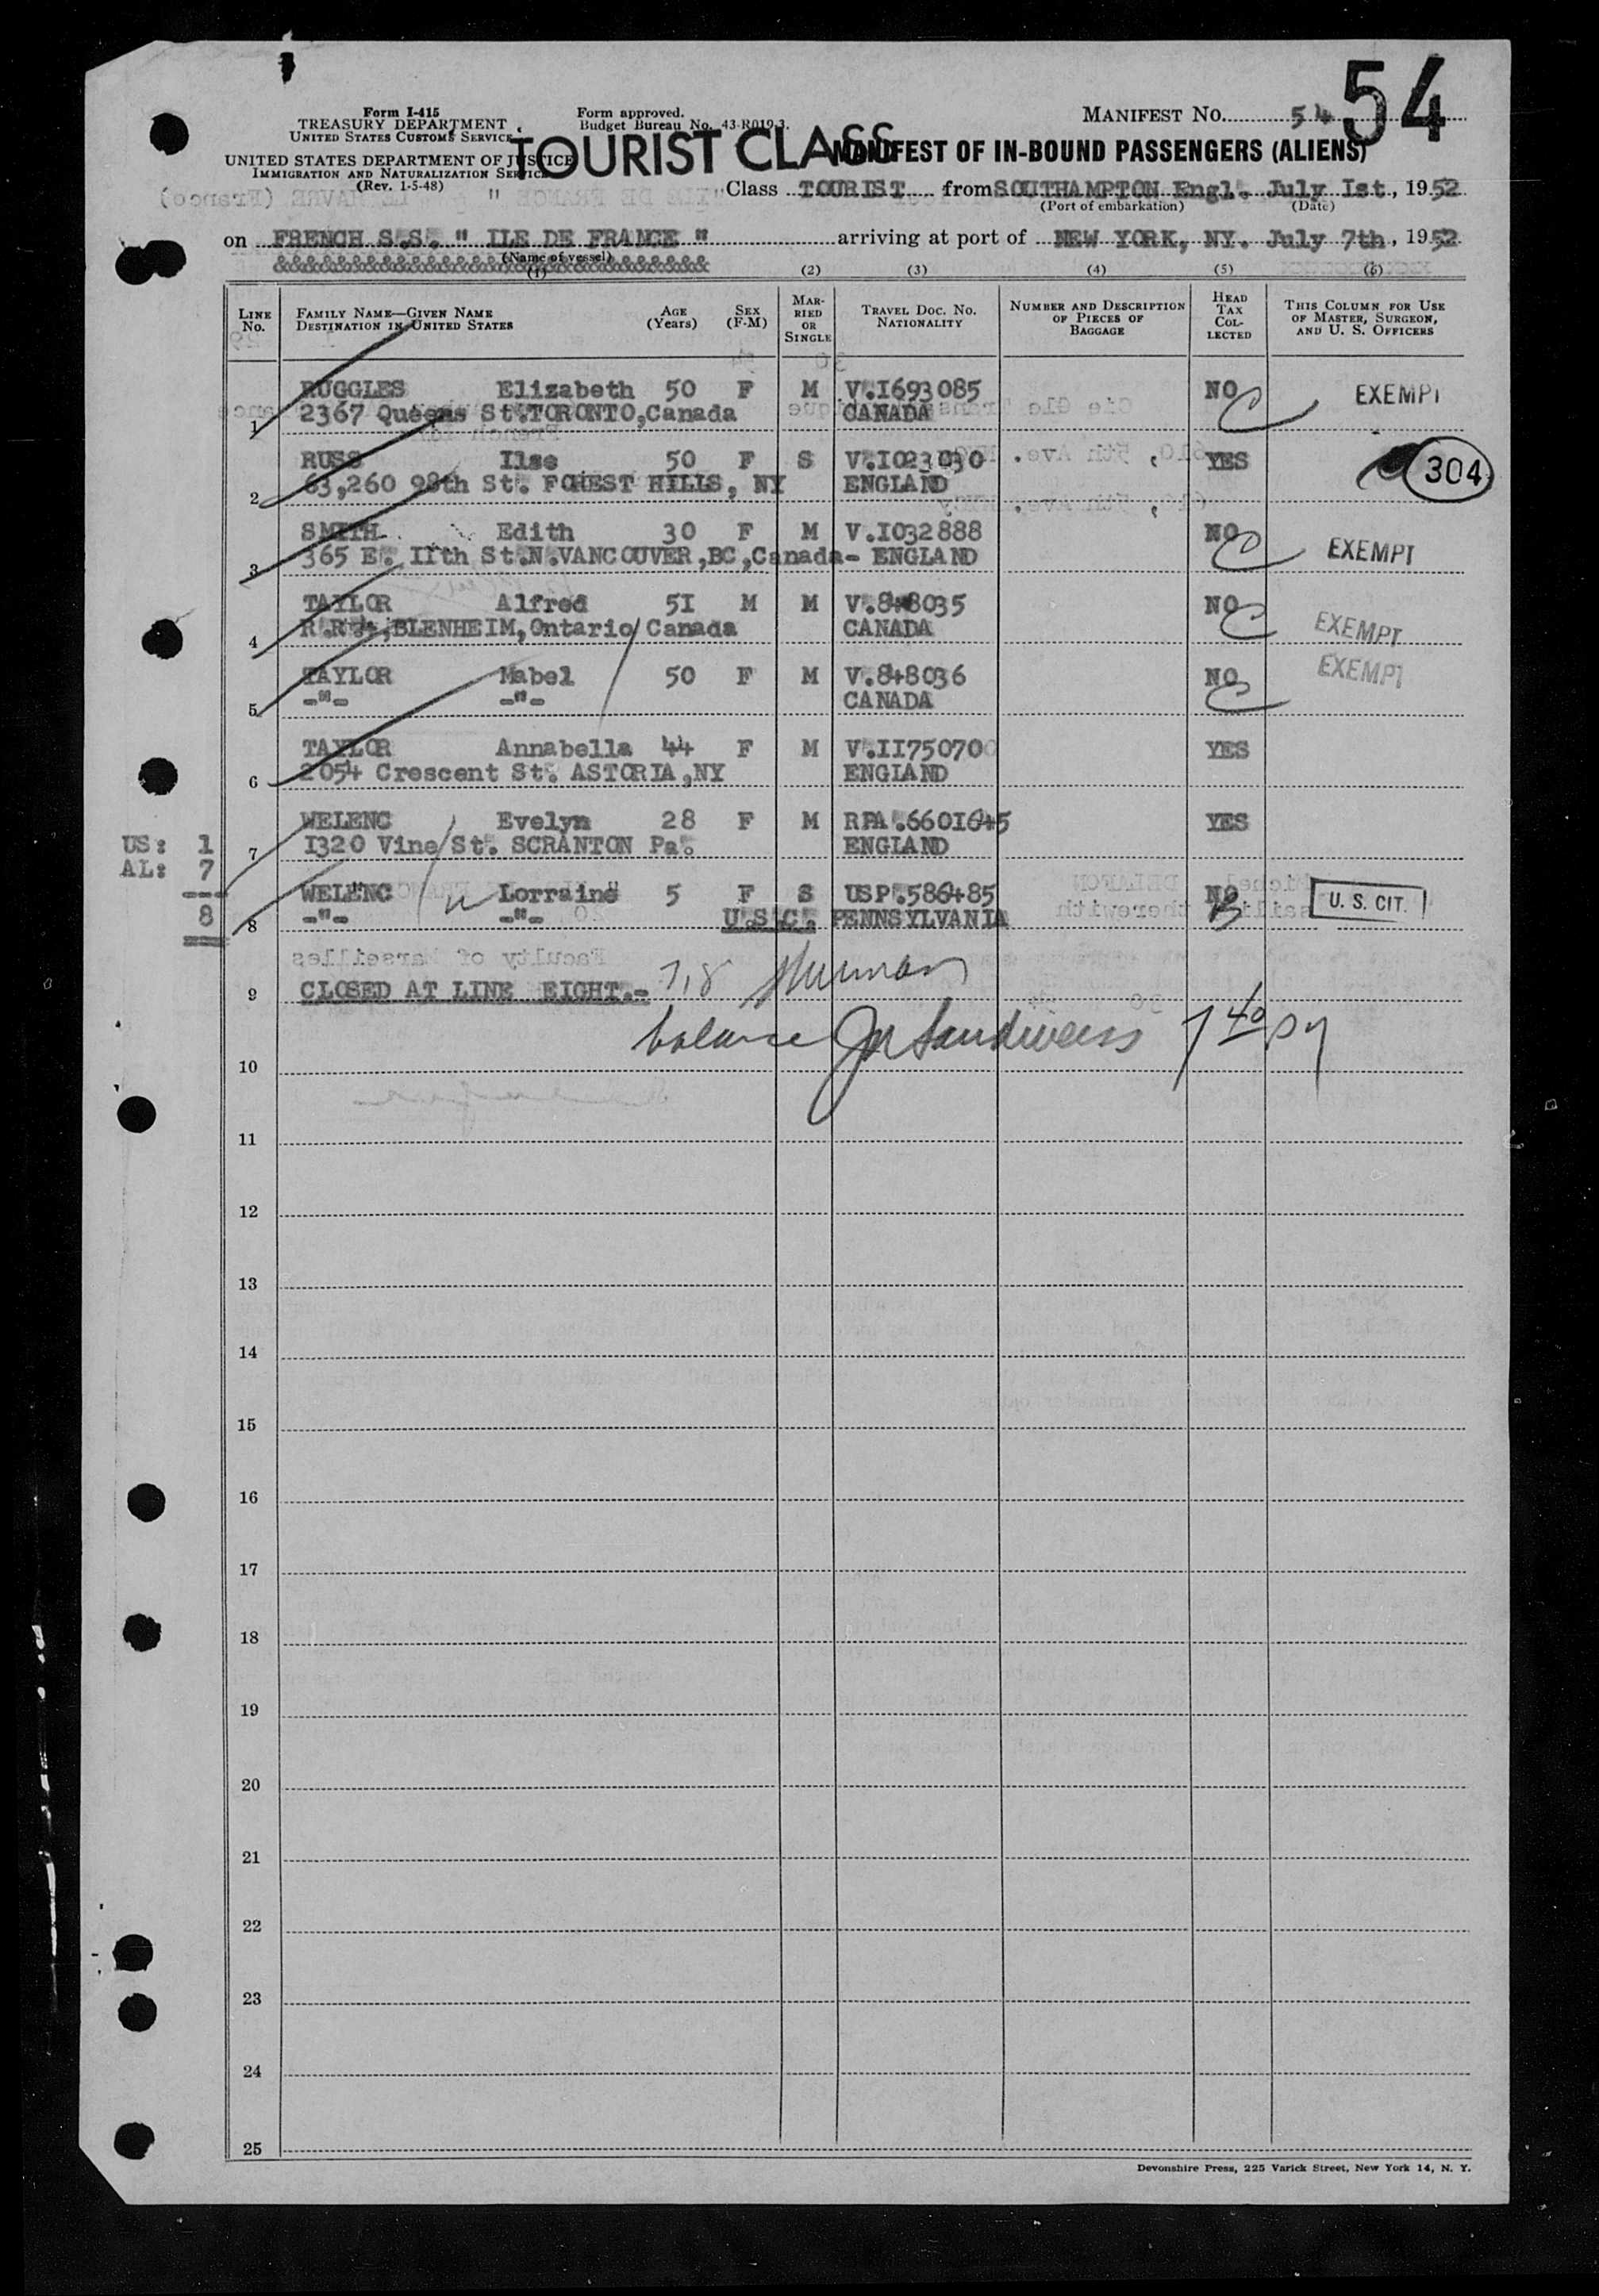 54
Form I-415
TREASURY DEPARTMENT
UNITED STATES CUSTOMS SERVICE
UNITED STATES DEPARTMENT OF JUSTICE
IMMIGRATION AND NATURALIZATION SERVICE
(Rev. 1-5-48)
Form approved.
Budget Bureau No. 43-R019-3.
TOURIST CLASS
MANIFEST No. 54
MANIFEST OF IN-BOUND PASSENGERS (ALIENS)
Class TOURIST from SOUTHAMPTON Engl. July Ist., 1952
(Port of embarkation) (Date)
on FRENCH S.S. " ILE DE FRANCE " arriving at port of NEW YORK, NY. July 7th, 1952
(Name of vessel)
(1) (2) (3) (4) (5) (6)
LINE No. FAMILY NAME—GIVEN NAME DESTINATION IN UNITED STATES AGE (Years) SEX (F-M) MARRIED OR SINGLE TRAVEL DOC. NO. NATIONALITY NUMBER AND DESCRIPTION OF PIECES OF BAGGAGE HEAD TAX COLLECTED THIS COLUMN FOR USE OF MASTER, SURGEON, AND U. S. OFFICERS
RUGGLES Elizabeth 50 F M V.I693085 NO EXEMPT
1 2367 Queens St.TORONTO,Canada CANADA
RUSS Ilse 50 F S V.I023030 YES 304
2 63,260 98th St. FOREST HILLS, NY ENGLAND
SMITH Edith 30 F M V.I032888 NO EXEMPT
3 365 E. IIth St.N.VANCOUVER,BC,Canada- ENGLAND
TAYLOR Alfred 5I M M V.848035 NO EXEMPT
4 BLENHEIM,Ontario/Canada CANADA
TAYLOR Mabel 50 F M V.848036 NO EXEMPT
5 -"- -"- CANADA
TAYLOR Annabella 44 F M V.II75070 YES
6 2054 Crescent St. ASTORIA,NY ENGLAND
WELENC Evelyn 28 F M RPA.660I645 YES
7 I320 Vine St. SCRANTON Pa. ENGLAND
US: 1
AL: 7
8
WELENC Lorraine 5 F S USP.586485 NO U. S. CIT.
8 -"- -"- U.S.C. PENNSYLVANIA
9 CLOSED AT LINE EIGHT.- 7,8
balance
10
11
12
13
14
15
16
17
18
19
20
21
22
23
24
25
Devonshire Press, 225 Varick Street, New York 14, N. Y.